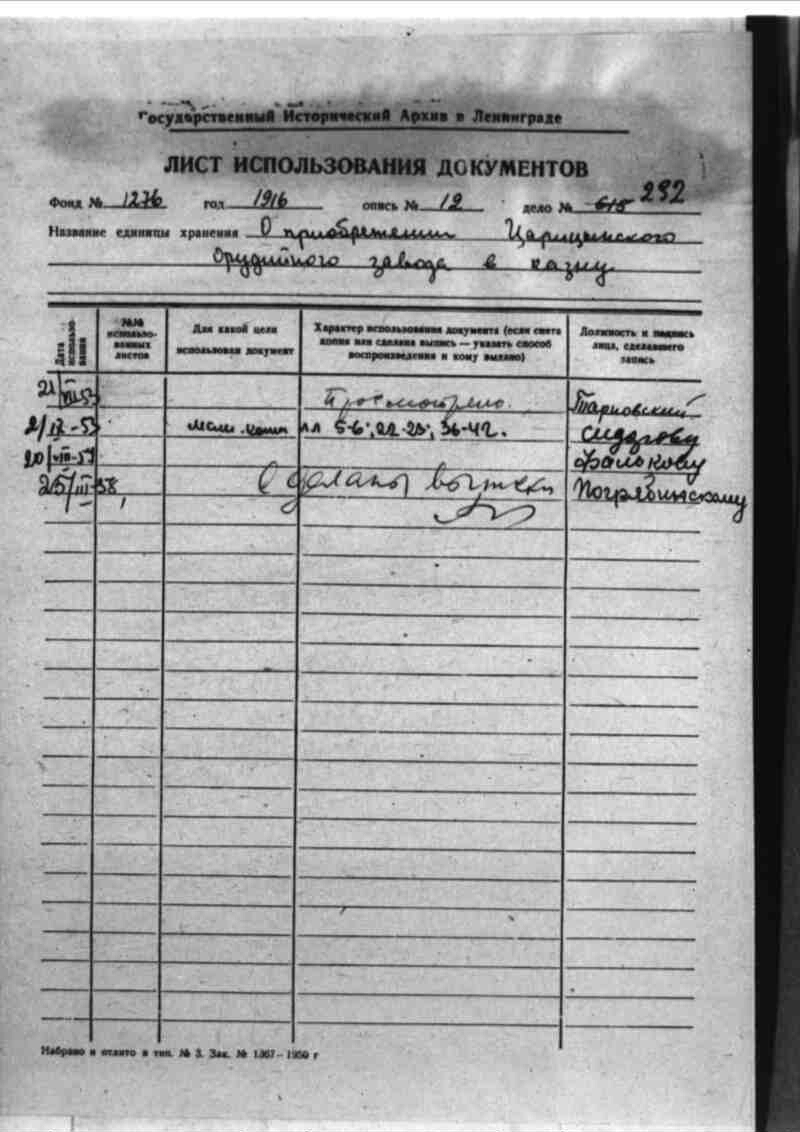 Государственный Исторический Архив в Ленинграде
ЛИСТ ИСПОЛЬЗОВАНИЯ ДОКУМЕНТОВ
Фонд № 1276 год 1916 опись № 12 дело № 615 292
Название единицы хранения О приобретении Царицынского
Орудийного завода в казну
Дата использования
№№ использованных листов
Для какой цели использован документ
Характер использования документа (если снята копия или сделана выпись — указать способ воспроизведения и кому выдано)
Должность и подпись лица, сделавшего запись
21/VII 53 Просмотрено. Тарновский
2/IX-53 копии лл 5-6; 22-25; 36-42. Сидорову
20/VIII-57 Фалькову
25/III-58, Сделаны выписки Погребинскому
Набрано и отлито в тип. № 3. Зак. № 1367—1950 г